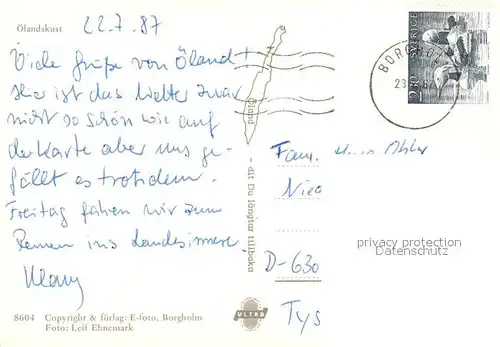 Ölandskust
22.7.87
Viele Grüße von Öland!
Hier ist das Wetter zwar
nicht so schön wie auf
der Karte aber uns ge-
fällt es trotzdem.
Freitag fahren wir zum
Rennen ins Landesinnere.
8604 Copyright & förlag: E-foto, Borgholm
Foto: Leif Ehnemark
Öland
- dit Du längtar tillbaka
ULTRA
SVERIGE
BORGHOLM
Fam.
D-630
Tys
privacy protection
Datenschutz